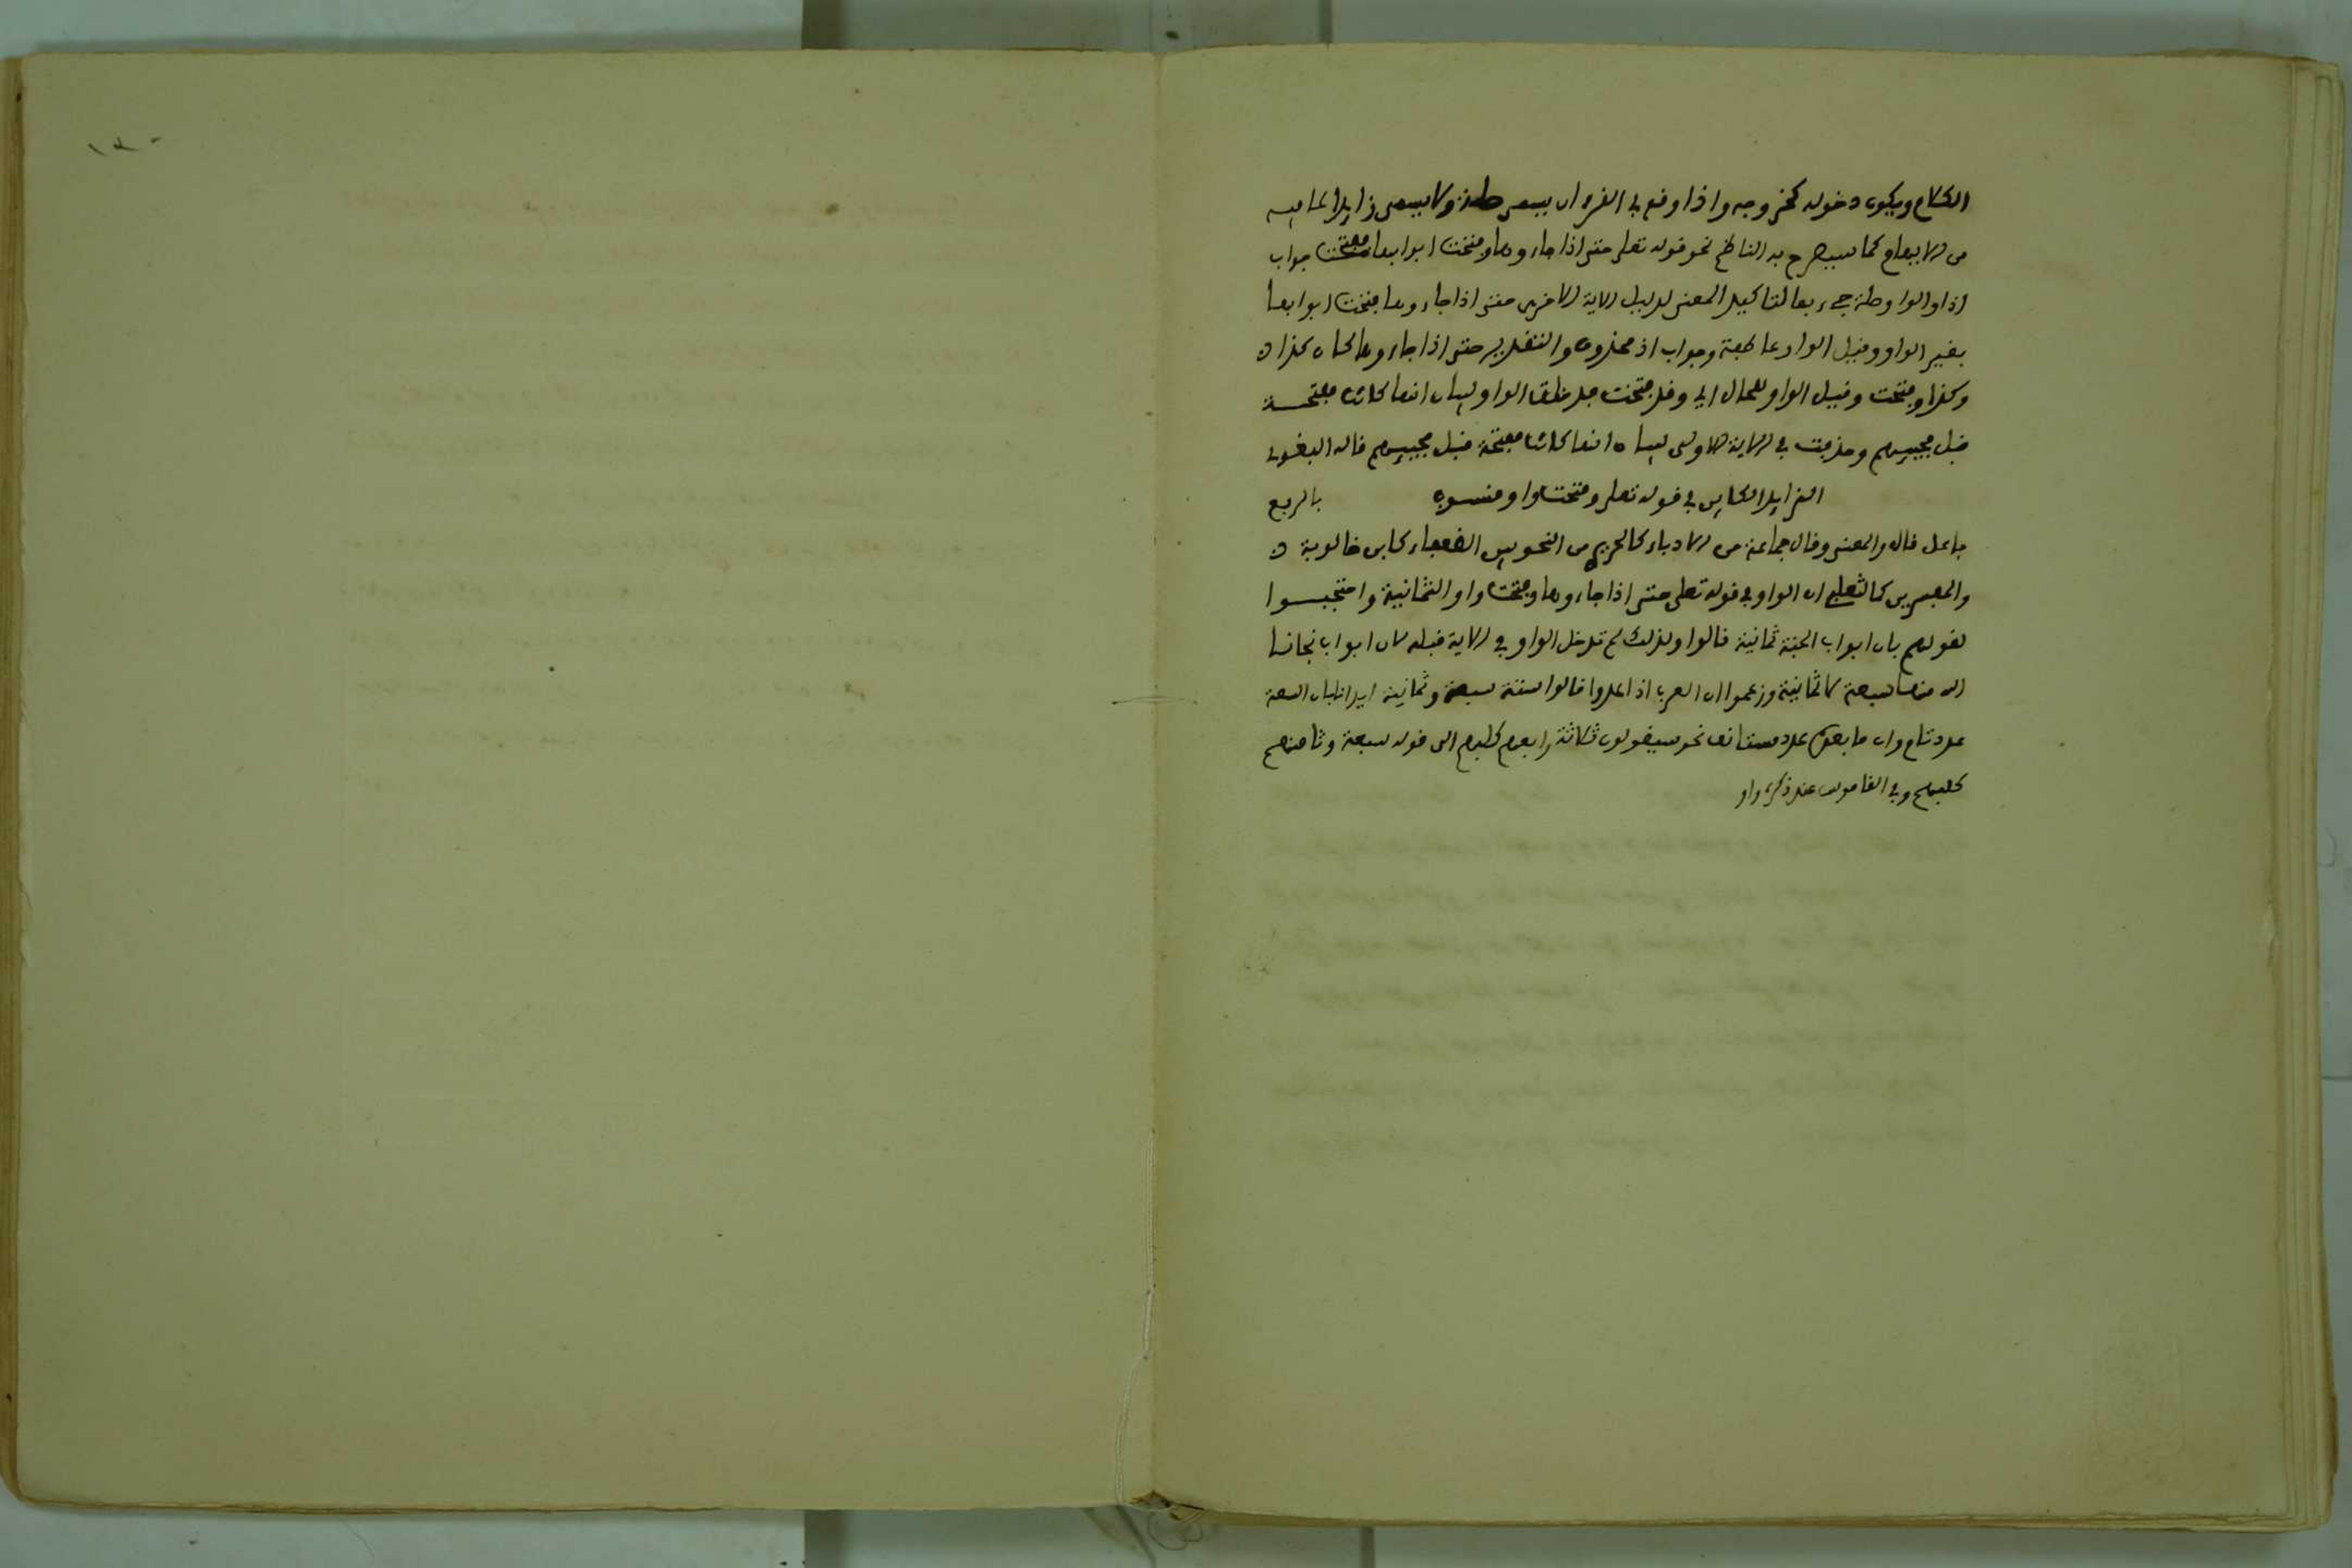 الكلام ويكون دخوله كخروجه واذا وقع في القرءان يسمى صلة ولا يسمى زايدا لما فيه
من الايهام كما سيصرح به الناظم نحو قوله تعلى حتى اذا جاءوها وفتحت ابوابها ففتحت جواب
اذا والواو صلة جيء بها لتاكيد المعنى بدليل الاية الاخرى حتى اذا جاءوها فتحت ابوابها
بغير الواو وقيل الواو عاطفة وجواب اذ محذوف والتقدير حتى اذا جاءوها كان كذا
وكذا وفتحت وقيل الواو للحال اي وقد فتحت الواو لبيان انها كانت مفتحة
قبل مجييهم وحذفت في الاية الاولى لبيان انها كانت مفتحة قبل مجييهم قاله البغوي
الزايد الكاين في قوله تعلى وفتحت واو منسوب بالرفع
فاعل قال والمعنى وقال جماعة من الادباء كالحريري من النحويين الضعفاء كابن خالوية
والمفسرين كالثعلبي ان الواو في قوله تعلى حتى اذا جاءوها وفتحت واو الثمانية واحتجوا
لقولهم بان ابواب الجنة ثمانية قالوا ولذلك لم تدخل الواو في الاية قبله لان ابواب نجانا
الله منها سبعة لا ثمانية وزعموا ان العرب اذا عدوا قالوا ستة سبعة وثمانية ايذانا بان السبعة
عدد تام وان ما بعده عدد مستانف نحو سيقولون ثلاثة رابعهم كلبهم الى قوله سبعة وثامنهم
كلبهم وفي القاموس عند ذكره واو
١٣٠